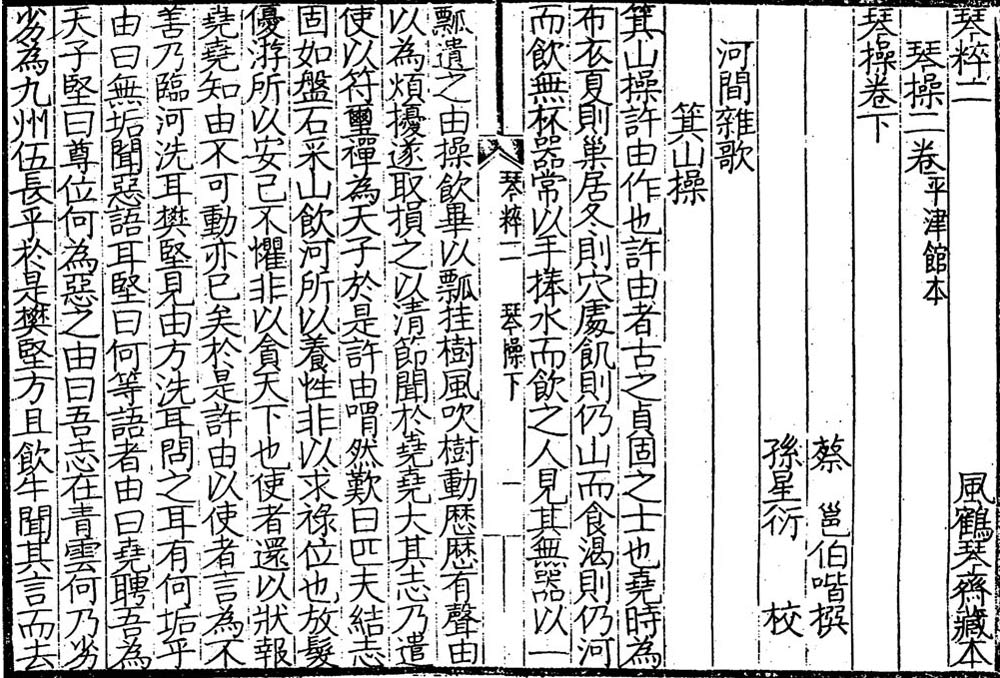 琴粹二　風鶴琴齋藏本
琴操二卷平津館本
琴操卷下
蔡　邕伯喈撰
孫星衍　校
河間雜歌
箕山操
箕山操許由作也許由者古之貞固之士也堯時為
布衣夏則巢居冬則穴處飢則仍山而食渴則仍河
而飲無杯器常以手捧水而飲之人見其無器以一
琴粹二　琴操下　一
瓢遺之由操飲畢以瓢挂樹風吹樹動歷歷有聲由
以為煩擾遂取損之以清節聞於堯堯大其志乃遣
使以符璽禪為天子於是許由喟然歎曰匹夫結志
固如盤石采山飲河所以養性非以求祿位也放髮
優游所以安己不懼非以貪天下也使者還以狀報
堯堯知由不可動亦已矣於是許由以使者言為不
善乃臨河洗耳樊堅見由方洗耳問之耳有何垢乎
由曰無垢聞惡語耳堅曰何等語者由曰堯聘吾為
天子堅曰尊位何為惡之由曰吾志在青雲何乃劣
劣為九州伍長乎於是樊堅方且飲牛聞其言而去